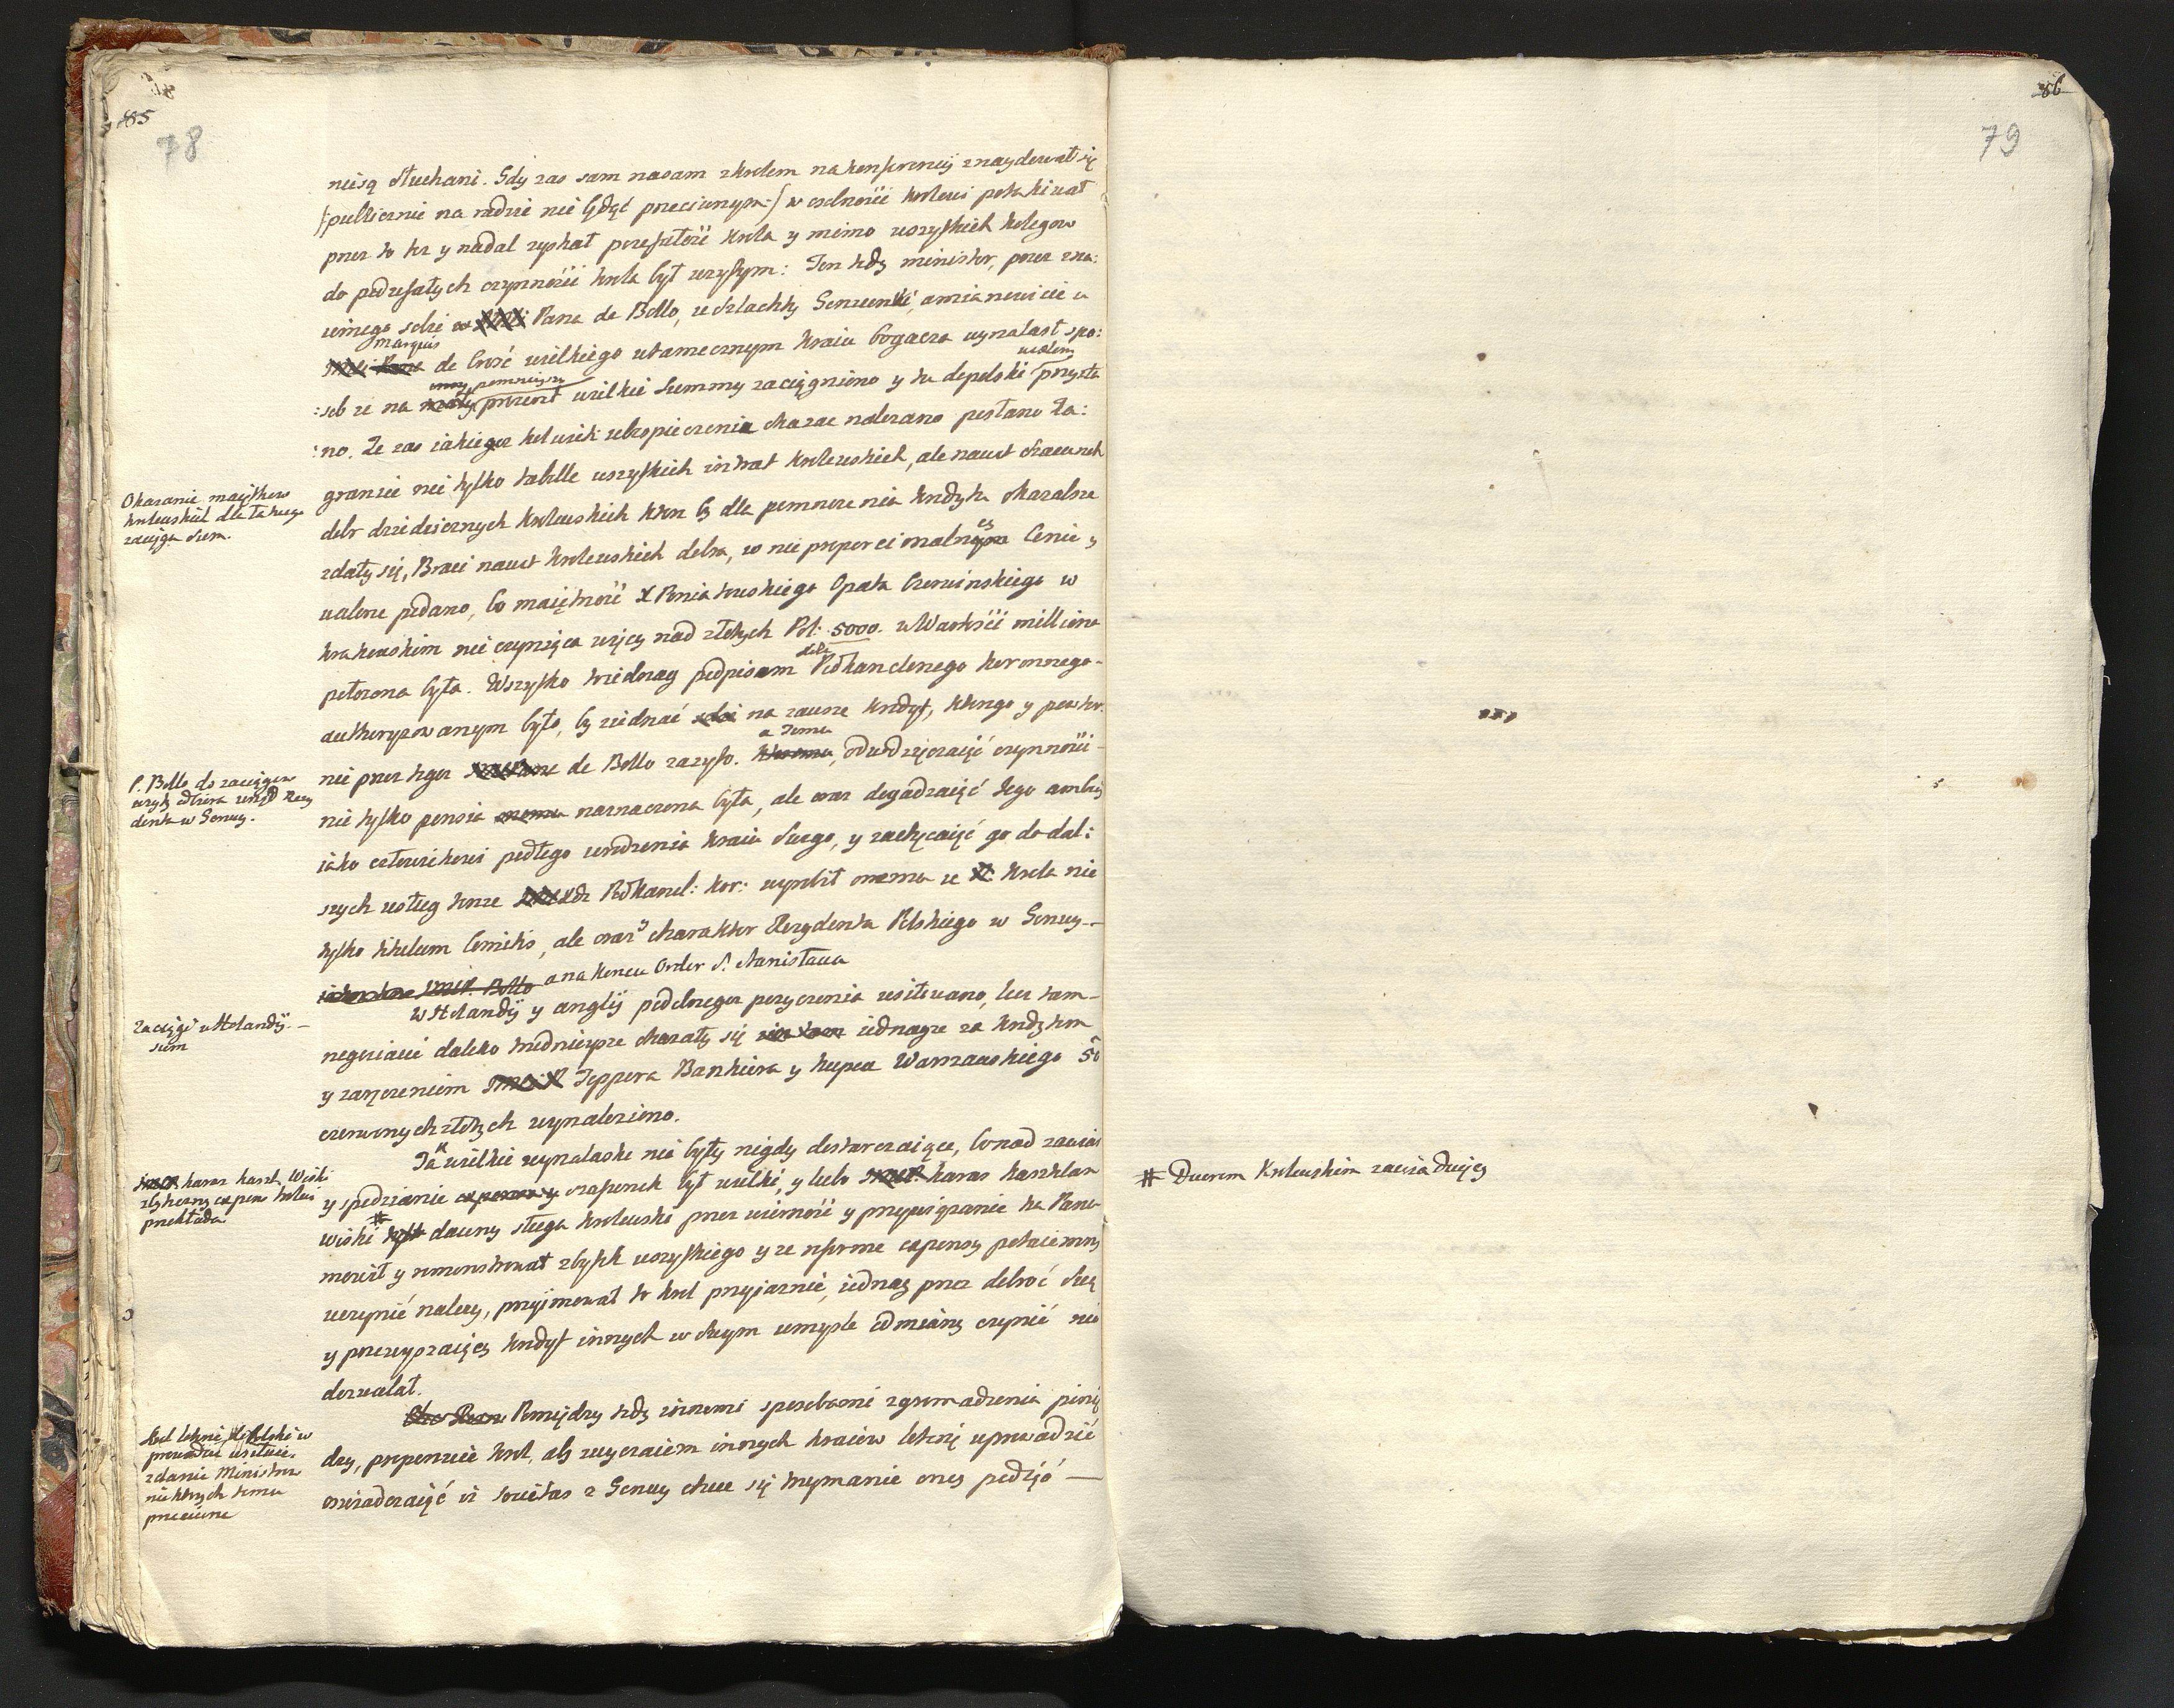 85
78
nie są słuchani. Gdy zas sam nasam zkrolem na konferencij znaydował się
/:publicznie na radzie nie będąć przeciwnym:/ w osobnośći krolewi potakiwał
przez to tez y nadal zyskał poufałość krola y mimo wszystkich kolegow
do poufałych czynnośći krola był uzytym: Ten tedy minister, przez zna:
iomego sobie Pana de Bollo, ze szlachty Genuenskie, amianowicie u
marquis
de wielkiego w tamecznym kraiu bogacza wynalast spo:
sob ze na wielkie summy zaciągniono y tu do polski przysła
wolemy
:no. Ze zas iakiegoz kolwiek ubezpieczenia okazac nalezano posłano Za:
granice nie tylko tabelle wszystkich intrat krolewskich, ale nawet szacunek
dobr dziedzicznych krolewskich ktore by dla pomnozenia kredytu okazalsze
zdały się, Braci nawet krolewskich dobra, w nie proporcionalney Cenie y
walorze podano, bo maiętność X Poniatowskiego Opata Czerwinskiego w
krakowskim nie czyniąca więcy nad złotych Pol: 5000. w Wartośći milliona
połozona była. Wszystko to iednag podpisem Podkanclerzego koronnego
authoryzowanym było, by ziednać na zawsze kredyt, ktorego y powtor:
nie przez tegoz de Bollo zazyto. a Temu, odwdzięczaiąć czynnośći
nie tylko pensia naznaczona była, ale oraz dogadzaiąć Jego ambicij
iako człowiekowi podłego urodzenia kraiu swego, y zachęcaiąć go do dal:
szych usług tenze Podkancl: kor: wyrobił onemu u krola nie
tylko titulum Comitis, ale oraz charakter Rezydenta Polskiego w Genuy
a na koncu Order S. Stanisława
W Holandij y anglij podobnegoz pozyczenia usiłowano, lecz tam
negociacie daleko trudnieysze okazały się iednagze za kredytem
y zaręczeniem Teppera Bankiera y kupca Warszawskiego 50
czerwonych złotych wynaleziono.
Tak wielkie wynalaski nie były nigdy dostarczaiące, bo nad zawias
y spodzianie szapunek był wielki, y lubo karas kasztelan
wiski # dawny sługa krolewski przez wierność y przywiązanie ku Panu
mowił y remonstrował zbytek wszystkiego y ze reforme expensy potaiemny
uczynić nalezy, przyimował to krol przyiaznie, iednag przez dobroć swą
y przewyszaiący kredyt innych w swym umysle odmiany czynić nie
dozwalał.
Pomiędzy tedy innemi sposobami zgromadzenia pienię
dzy, proponuie krol, aby zwyczaiem innych kraiow loterię uprowadzić
oswiadczaiąć iz societas z Genuy chce się utrzymanie oney podiąć
Okazanie maiątkow
krolewskich dla łatwego
zaciągu sum.
P. Bollo do zaciągow
uzyty odbiera urząd Rezy
denta w Genuy.
Zaciągi w Holandij
sum
karas kaszt. Wiski
zbyteczny expens krolowi
przekłada
krol loterię do Polski w
prowadzić usiłuie,
zdanie Ministrow
niektorych temu
przeciwne
86
79
# Dworem Krolewskim zawiaduiący